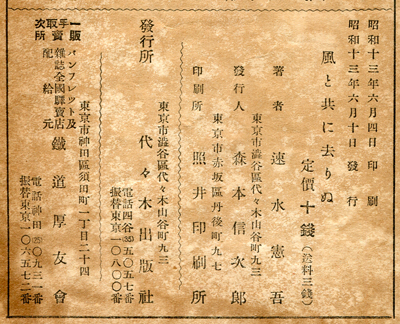 昭和十三年六月四日 印刷
昭和十三年六月十日 發行
風と共に去りぬ
定價十錢(送料三錢)
著者 速水憲吾
東京市澁谷區代々木山谷町九三
發行人 森本信次郎
東京市赤坂區丹後町九七
印刷所 照井印刷所
東京市澁谷區代々木山谷町九三
發行所 代々木出版社
電話四谷㉟五〇五七番
振替東京一〇八〇〇番
一手販賣取次所
パンフレット及雜誌全國驛賣店配給元
東京市神田區須田町一丁目二十四
鐵道厚友會
電話神田㉕〇九三一番
振替東京一〇六五七二番